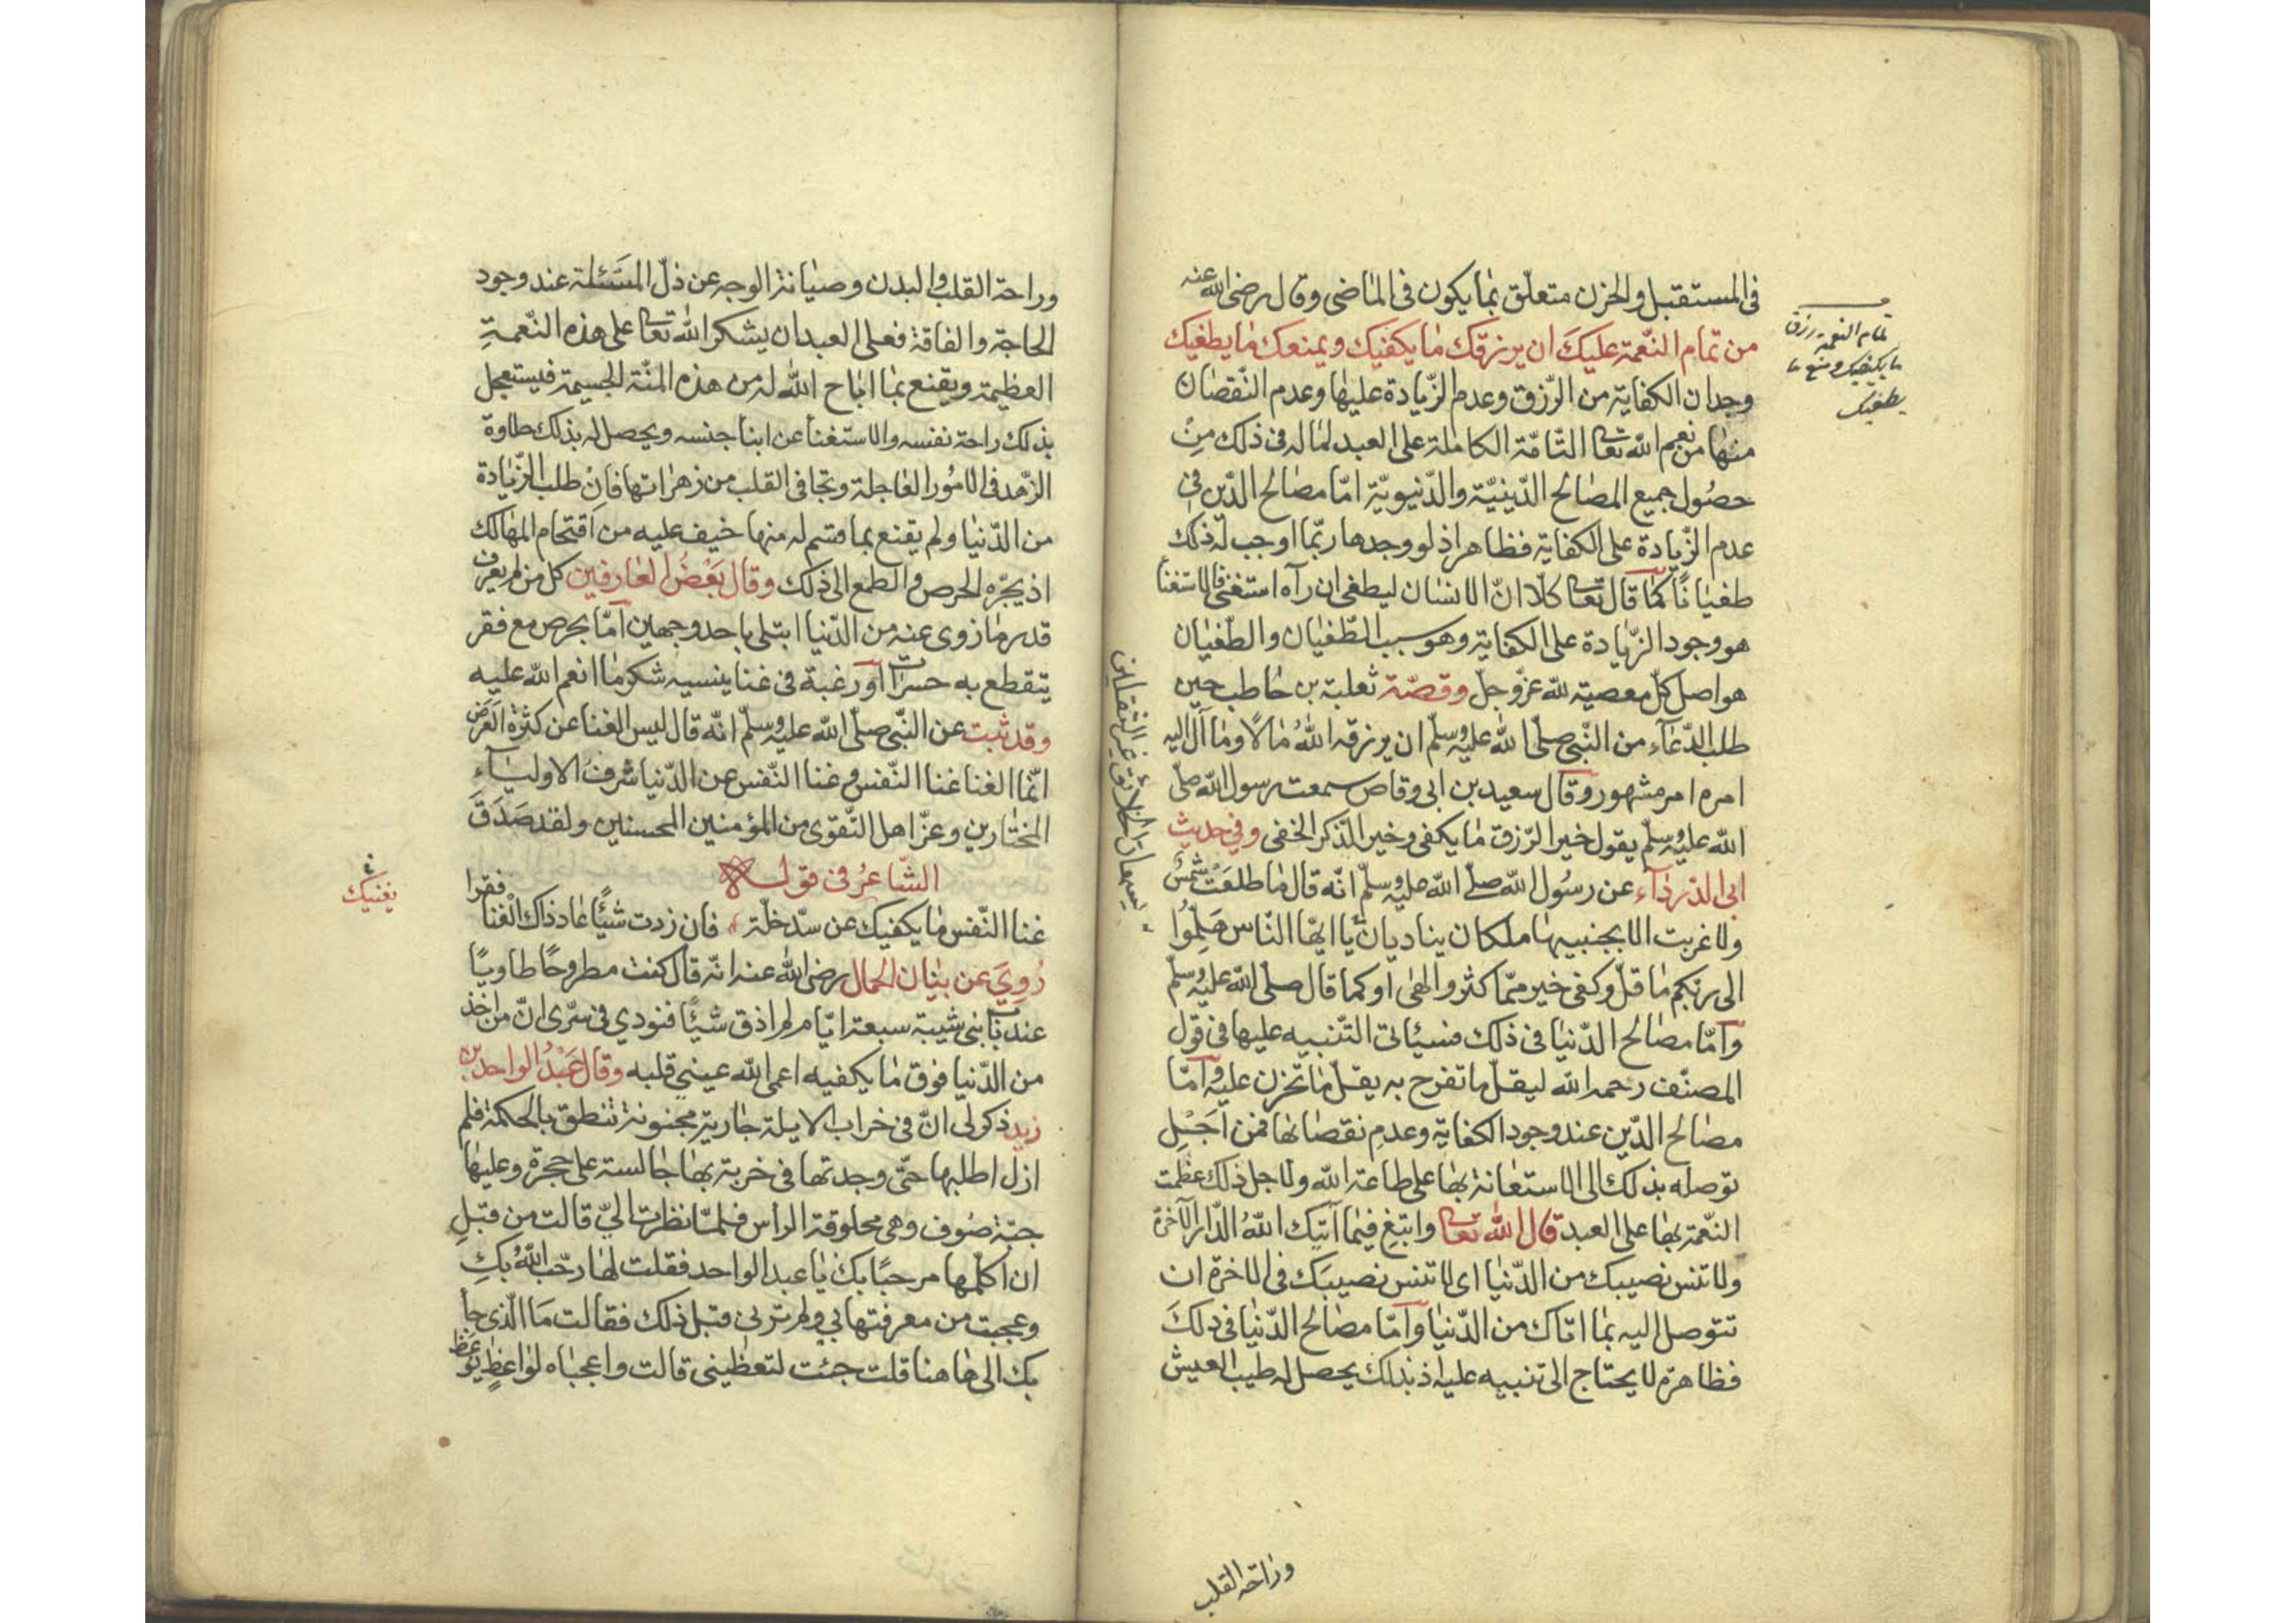 فى المستقبل والحزن متعلّق بما يكون فى الماضى وقال رضى الله عنه
من تمام النّعمة عليكَ ان يرزقك ما يكفيك ويمنعك ما يطغيك
وجدان الكفاية من الرّزق وعدم الزّيادة عليها وعدم النّقصان
منها من نعم الله تعا التّامّة الكاملة على العبد لما له فى ذلك مِن
حصُول جميع المصالح الدّينيّة والدّنيويّة امّا مصالح الدّين فى
عدم الزّيادة على الكفاية فظاهر اذ لو وجدها ربّما اوجب له ذلك
طغيانًا كما قال تعا كلّا انّ الانسان ليطغى ان رآه استغنى فالاستغنأ
هو وجود الزّيادة على الكفاية وهو سبب الطّغيان والطّغيان
هو اصل كلّ معصية لله عزّ وجلّ وقصّة ثعلبة بن حاطب حين
طلب الدّعآء من النّبى صلّى الله عليه وسلّم ان يرزقه اللهُ مالًا وما آل اليه
امره امر مشهور وقال سعيد بن ابى وقاص سمعت رسول الله صلّى
الله عليه وسلّم يقول خير الرّزق ما يكفى وخير الذّكر الخفى وفى حديث
ابى الدّردآء عن رسُول الله صلّى الله عليه وسلّم انّه قال ما طلعَتْ شمسٌ
ولا غربت الا بجنبيها ملكان يناديان يا ايّها النّاس هَلمُّوا
الى ربّكم ما قلّ وكفى خير ممّا كثر والهى او كما قال صلّى الله عليه وسلّم
وامّا مصالح الدّنيا فى ذلك فسيأتى التّنبيه عليها فى قول
المصنّف رحمه الله ليقلّ ما تفرح به يقلّ ما تحزن عليه وامّا
مصالح الدّين عند وجود الكفاية وعدمِ نقصانها فمن اَجَلِ
توصله بذلك الى الاستعانة بها على طاعة الله ولاجل ذلك عظمت
النّعمة بها على العبد قال الله تعا وابتغِ فيما آتيك اللهُ الدّار الآخرة
ولا تنس نصيبك من الدّنيا اى لا تنس نصيبَك فى الاخرة ان
تتوصل اليه بما اتاك من الدّنيا وامّا مصالح الدّنيا فى ذلكَ
فظاهرة لا يحتاج الى تنبيه عليه اذ بذلك يحصل له طيب العيش
وراحة القلب
تمام النعمة رزق
ما يكفيك ومنع ما
يطغيك
وراحة القلب والبدن وصيانة الوجه عن ذلّ المسَئلة عند وجود
الحاجة والفاقة فعلى العبد ان يشكر الله تعا على هذه النّعمةِ
العظيمة ويقنع بما اباح الله له من هذه المنّة الجسيمة فيستعجل
بذلك راحة نفسه والاستغنأ عن ابنأ جنسه ويحصل له بذلك حلاوة
الزّهد فى الامُور العاجلة وتجافى القلب من زهراتها فانْ طلب الزّيادة
من الدّنيا ولم يقنع بما قسم له منها خيف عليه من اقتحام المهالك
اذ يجرّه الحرص والطمع الى ذلك وقال بَعْضُ العَارفين كل من لم يعرف
قدر ما زوى عنه من الدّنيا ابتلى باحد وجهين امّا بحرص مع فقر
يتقطع به حسرات او رغبة فى غنا ينسيه شكر ما انعم الله عليه
وقد ثبت عن النّبى صلّى الله عليه وسلّم انّه قال ليس الغنا عن كثرة العَرَض
انّما الغنا غنا النّفس وغنا النّفس عن الدّنيا شرفُ الاوليَآء
المختارين وعزّ اهل التّقوى من المؤمنين المحسنين ولقد صَدَقَ
الشّاعرُ فى قوله
غنا النّفس ما يكفيك عن سدّ خلّة فان زدت شيًأ عاد ذاك الغنا فقرا
يغنيك
رُوِيَ عن بنان الحمال رضى الله عنه انّه قال كنت مطروحًا طاويًا
عند باب بنى شيبة سبعة ايّام لم اذق شيًأ فنودي فى سّرى انّ من اخذ
من الدّنيا فوق ما يكفيه اعمى الله عينيْ قلبه وقال عَبْدُ الواحد بن
زيد ذكر لى انّ فى خراب الايلة جارية مجنونة تنطق بالحكمة فلم
ازل اطلبها حتّى وجدتها فى خربة بها جالسة على حجرة وعليها
جبّة صُوف وهى محلوقة الرأس فلمّا نظرت اليّ قالت من قبلِ
ان اكلّمها مرحبًا بك يا عبد الواحد فقلت لها رحّب اللهُ بكِ
وعجبت من معرفتها بي ولم ترنى قبل ذلك فقالت مَا الّذى جأ
بك الى هاهنا قلت جئت لتعظينى قالت واعجباه لواعظٍ يُوعَظ